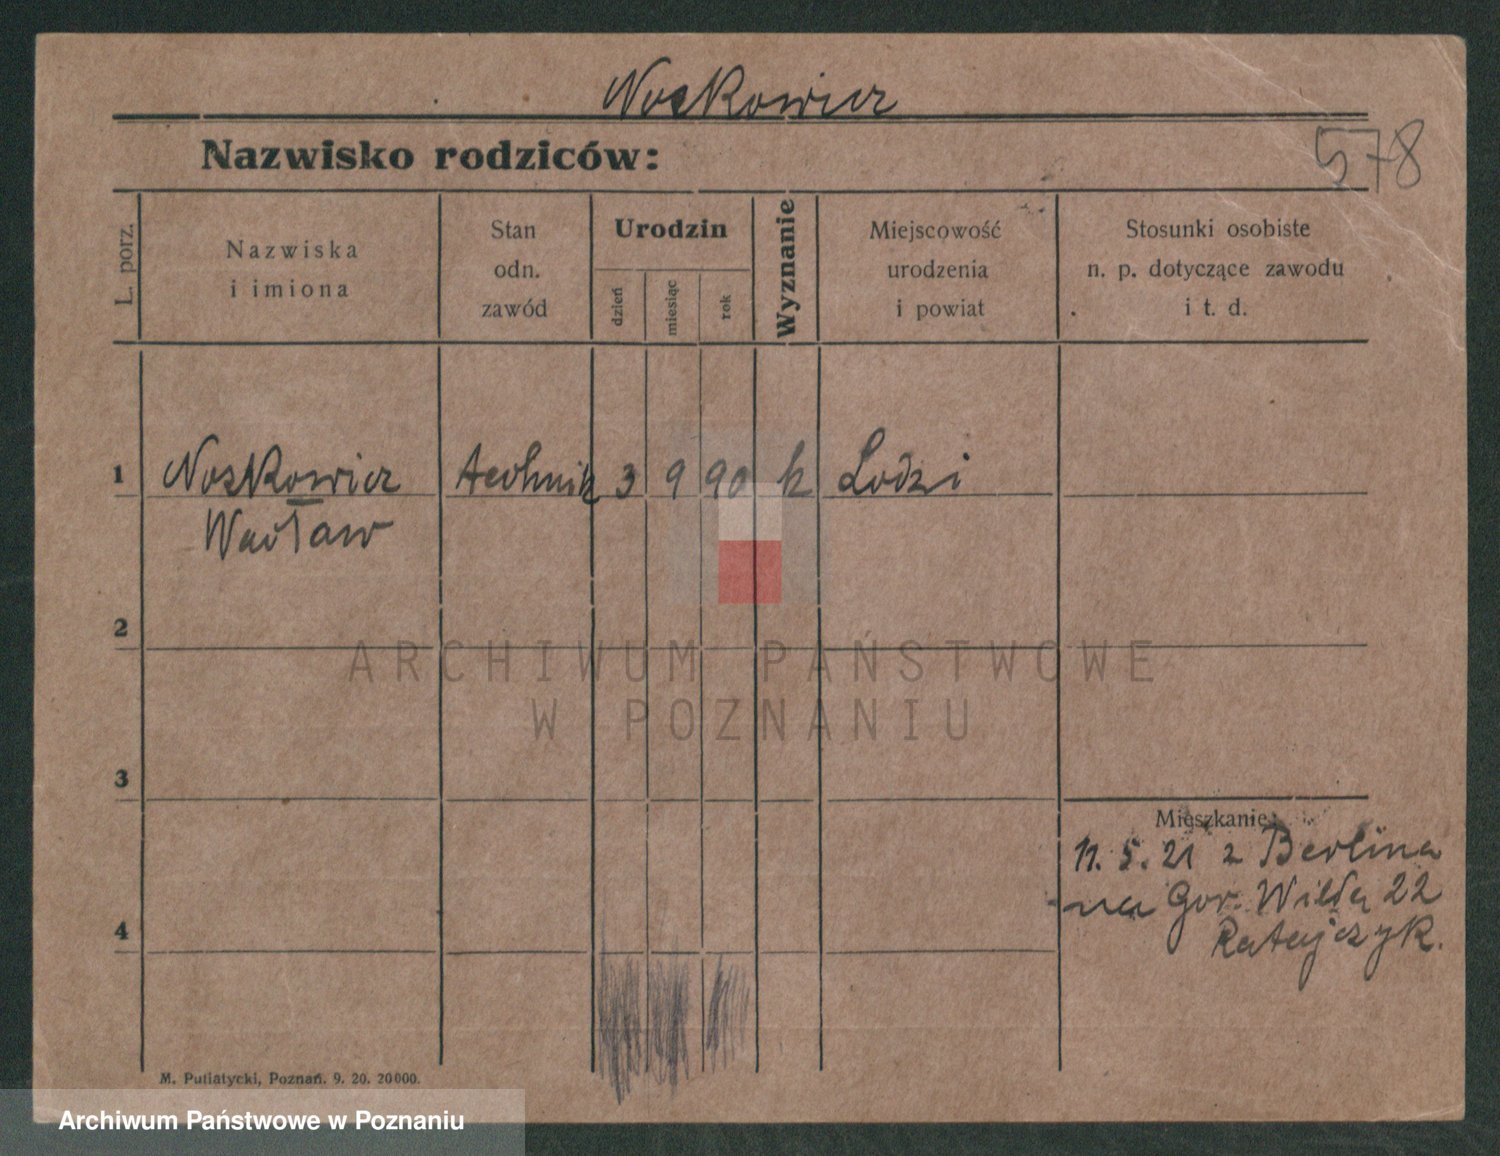 Noskowicz
Nazwisko rodziców:
578
L. porz.
Nazwiska
i imiona
Stan
odn.
zawód
Urodzin
dzień
miesiąc
rok
Wyznanie
Miejscowość
urodzenia
i powiat
Stosunki osobiste
n. p. dotyczące zawodu
i t. d.
1 Noskowicz technik 3 9 90 k Lodzi
Wacław
2
ARCHIWUM PAŃSTWOWE
W POZNANIU
3
Mieszkanie:
11. 5. 21 z Berlina
na Gor. Wilda 22
Ratajczyk.
4
M. Putiatycki, Poznań. 9. 20. 20000.
Archiwum Państwowe w Poznaniu